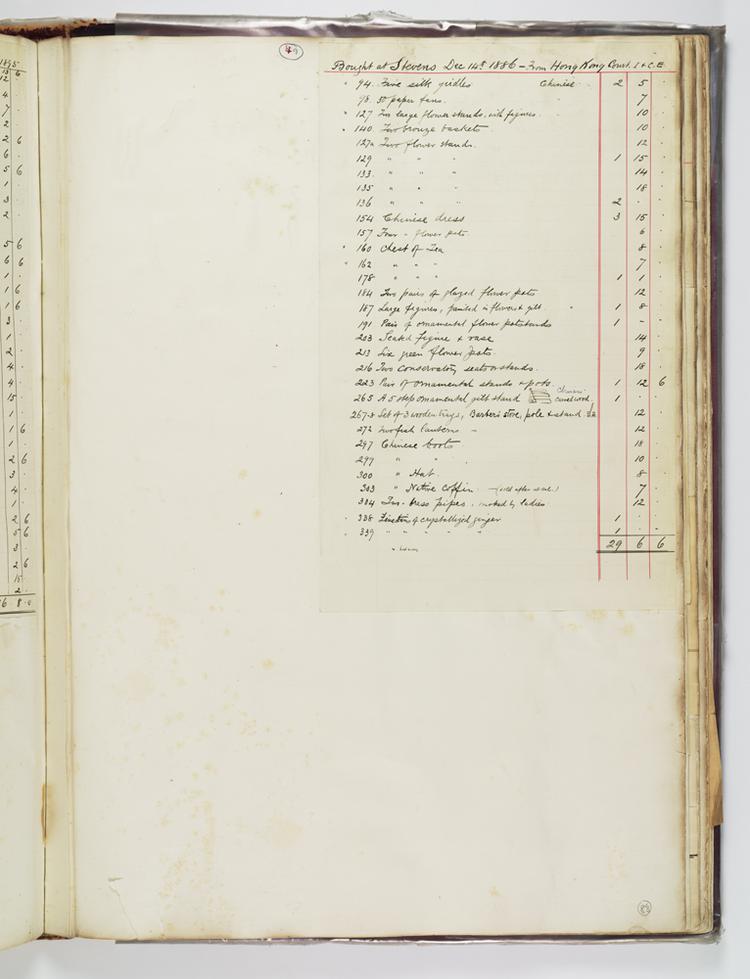 49
Bought at Stevens Dec 14th 1886 - From Hong Kong Court I & C.E.
" 94. Five silk girdles Chinese 2 5 .
98. 50 paper fans. 7 .
" 127 Two large flower stands, with figures. 10 .
" 140. Two bronze baskets 10 .
127a Two flower stands. 12
129 " " " 1 15 .
133. " " " 14 .
135 " " " 18 .
136 " " " 2 . .
154 Chinese dress 3 15 .
157 Four - flower pots. 6 .
" 160 Chest of Tea 8 .
" 162 " " " 7 .
178 " " " 1 1 .
184 Two pairs of glazed flower pots 12
187 Large figures, painted in flowers & gilt 1 8 .
191 Pair of ornamental flower potstands 1 - .
203 Seated figure & vase 14 .
213 Six green flower pots. 9 .
216 Two conservatory seats or stands. 18 .
223 Pair of ornamental stands & pots 1 12 6
265 A 5 step ornamental gilt stand Chinese camelwood. 1 . .
267-8 Set of 3 wooden trays, Barber's stove, pole & stand. 12 .
272 Two fish lanterns 12
297 Chinese boots 18
299 " " 10 .
300 " Hat 8 .
303 " Native Coffin (sold after sale) 7 .
304 Two brass pipes, smoked by ladies 12 .
338 tins of crystallized ginger 1 . .
339 " " " " " 1 . .
29 6 6
1895
15 6
12
4
7
2
2 6
6
5 6
1
3
2
5 6
6 6
1 6
1 6
3
1
2
4
4
15
1
1 6
1
2 6
3
4
1
2 6
5 6
3
2 6
15
2
6 8 0